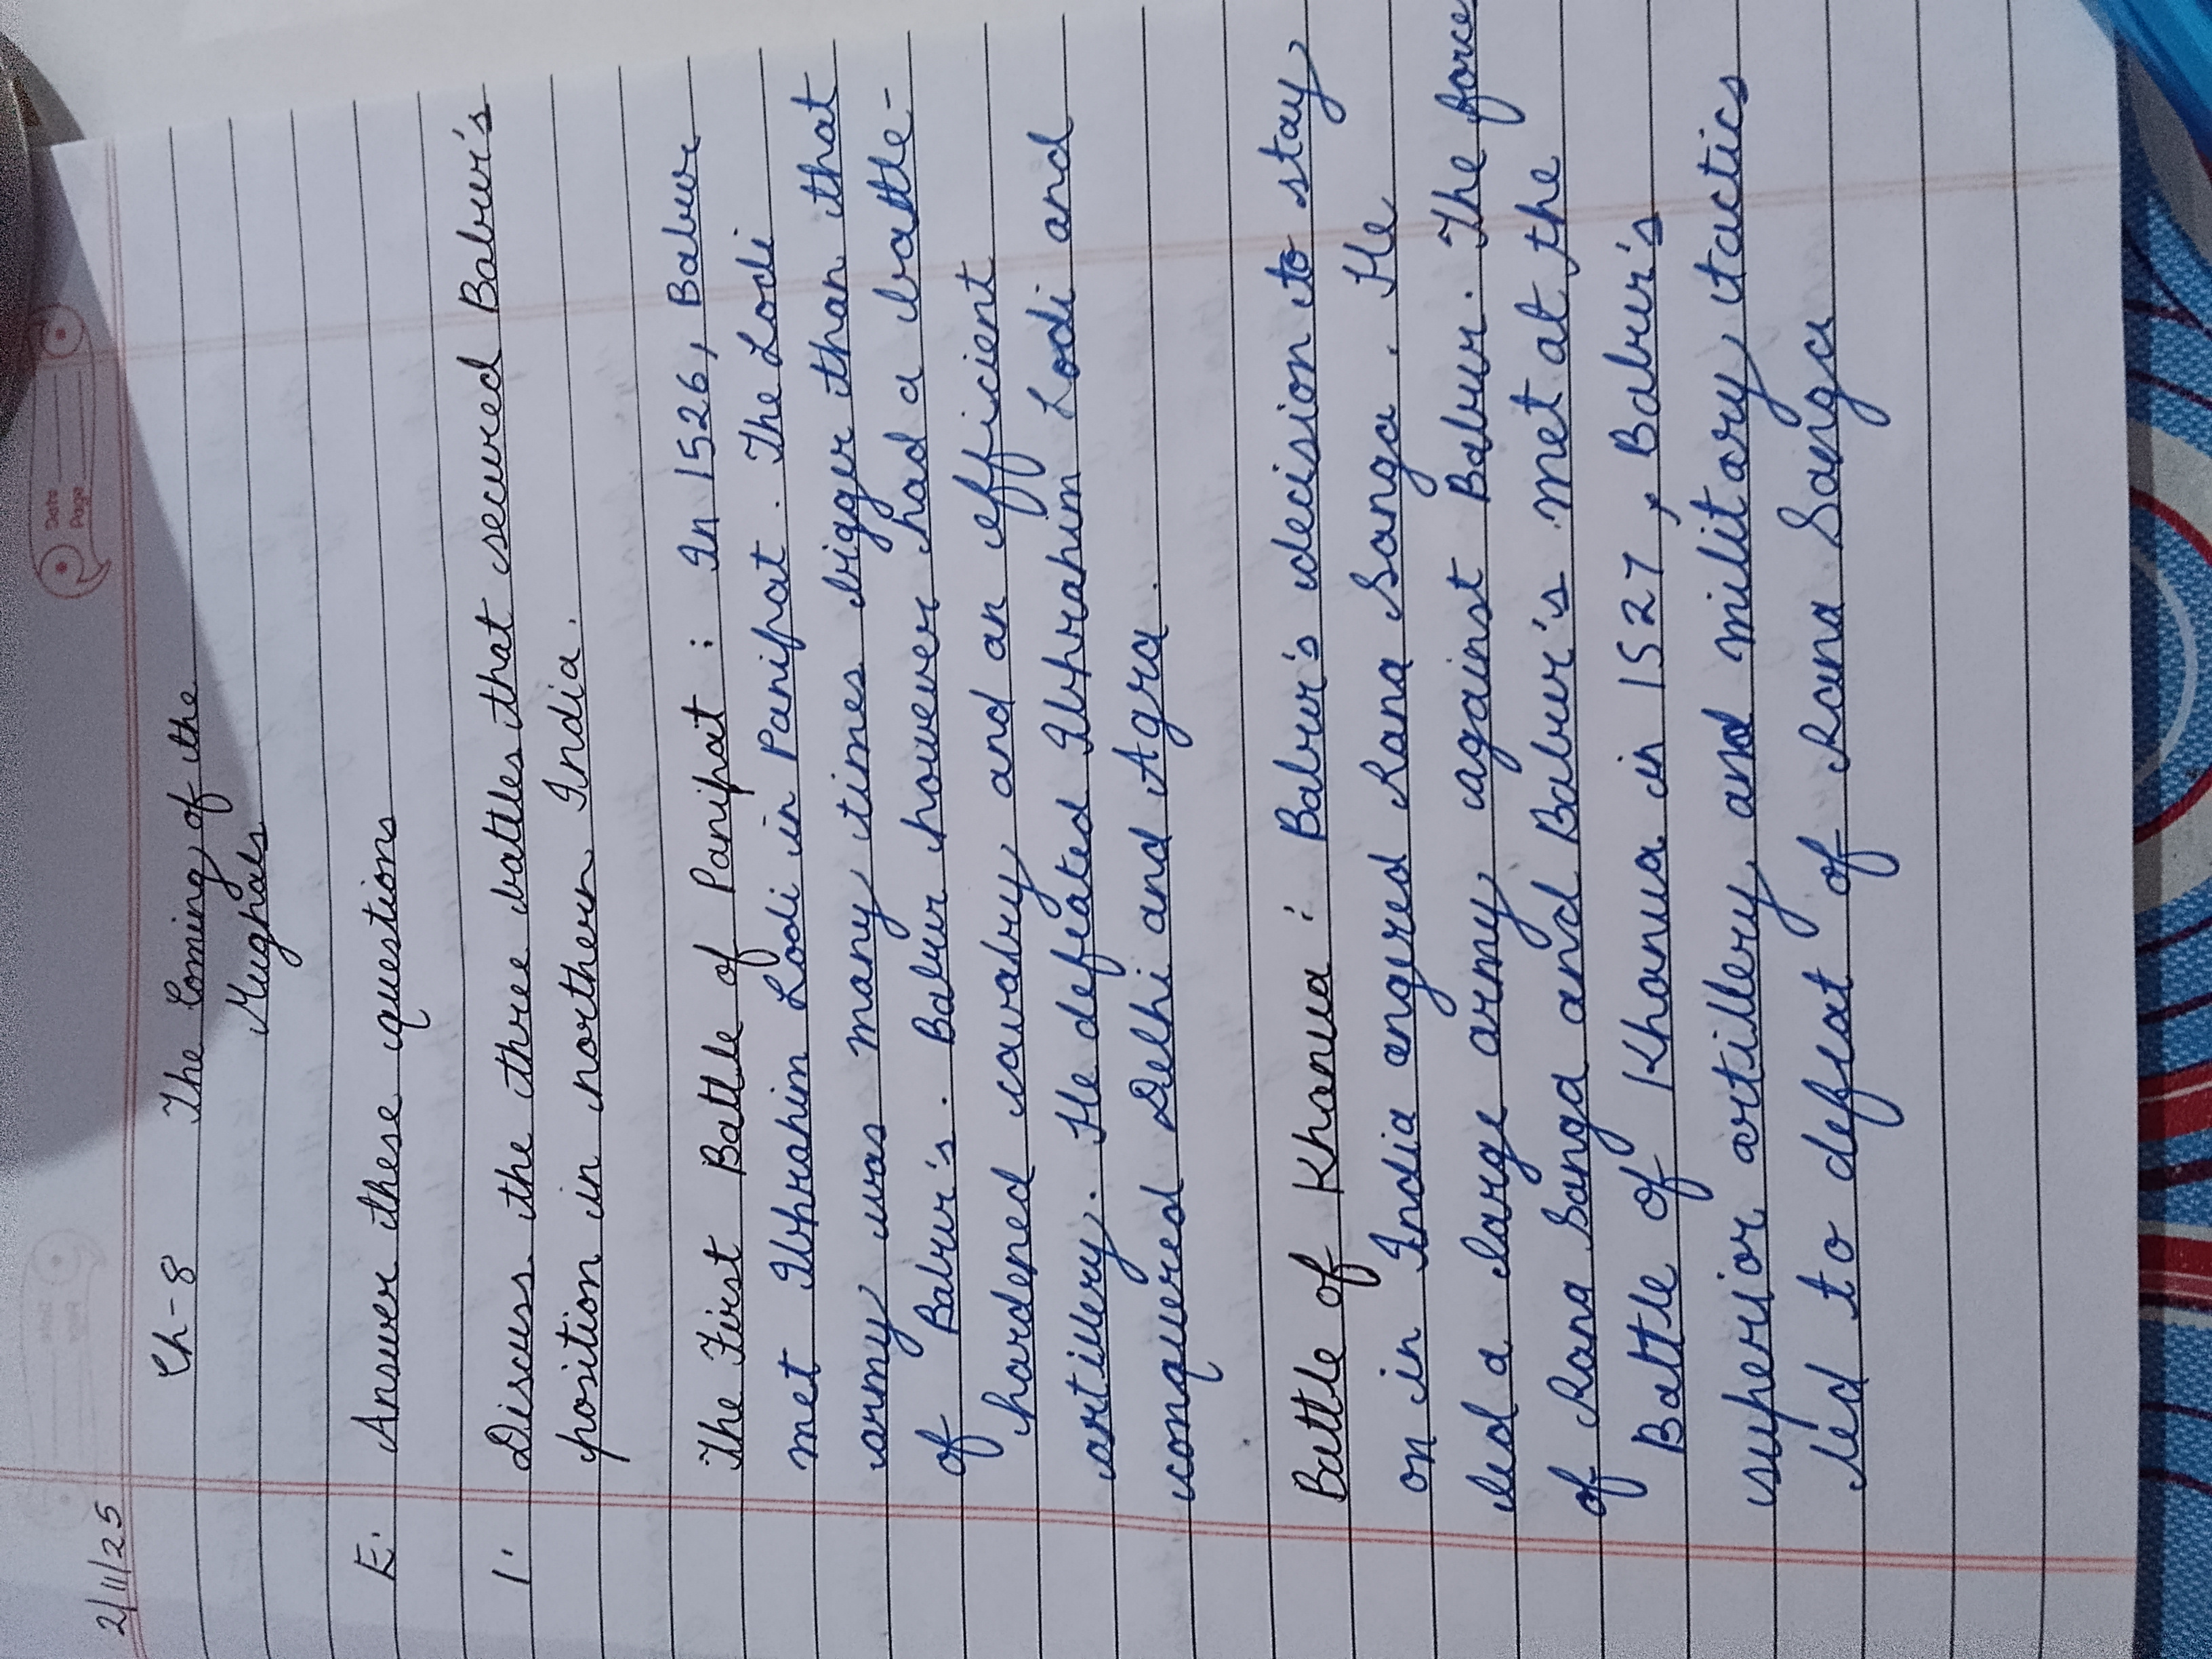 2/11/25
Date
Page
Ch-8 The Coming of the
Mughals
E. Answer these questions
1. Discuss the three battles that secured Babur's
position in northern India.
The First Battle of Panipat : In 1526, Babur
met Ibrahim Lodi in Panipat. The Lodi
army was many times bigger than that
of Babur's. Babur however had a battle-
hardened cavalry and an efficient
artillery. He defeated Ibrahim Lodi and
conquered Delhi and Agra.
Battle of Khanua : Babur's decision to stay
on in India angred Rana Sanga. He
led a large army against Babur. The force
of Rana Sanga and Babur's met at the
Battle of Khanua in 1527, Babur's
superior artillery and military tactics
led to defeat of Rana Sanga